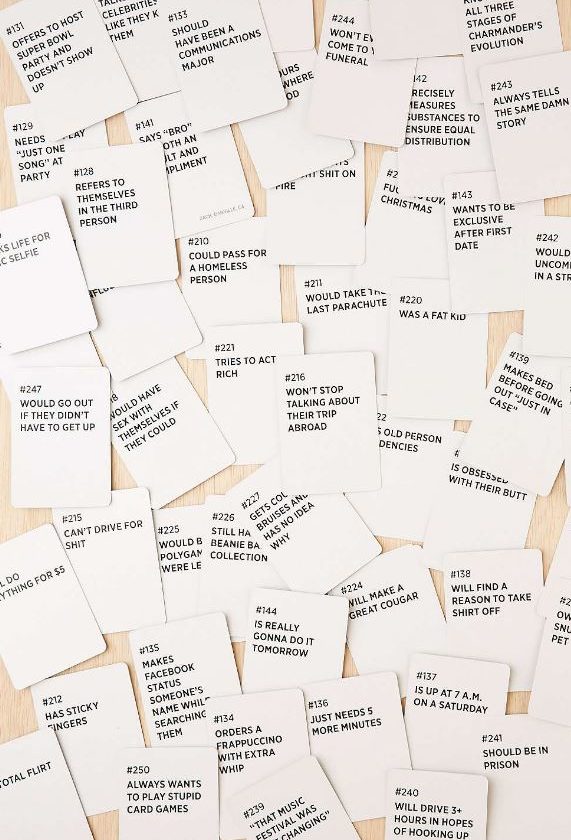 #131
OFFERS TO HOST
SUPER BOWL
PARTY AND
DOESN'T SHOW
UP
CELEBRITIES
LIKE THEY K
THEM
#133
SHOULD
HAVE BEEN A
COMMUNICATIONS
MAJOR
#244
WON'T
COME TO
FUNERAL
ALL THREE
STAGES OF
CHARMANDER'S
EVOLUTION
#243
ALWAYS TELLS
THE SAME DAMN
STORY
PRECISELY
MEASURES
SUBSTANCES TO
ENSURE EQUAL
DISTRIBUTION
#129
NEEDS
"JUST ONE
SONG" AT
PARTY
#141
SAYS "BRO"
#128
REFERS TO
THEMSELVES
IN THE THIRD
PERSON
SHIT ON
FIRE
LOV
CHRISTMAS
#143
WANTS TO BE
EXCLUSIVE
AFTER FIRST
DATE
#242
WOULD
UNCOM
IN A STR
KS LIFE FOR
IC SELFIE
#210
COULD PASS FOR
A HOMELESS
PERSON
#211
WOULD TAKE THE
LAST PARACHUTE
#220
WAS A FAT KID
#221
TRIES TO ACT
RICH
#216
WON'T STOP
TALKING ABOUT
THEIR TRIP
ABROAD
#139
MAKES BED
BEFORE GOING
OUT "JUST IN
CASE"
#247
WOULD GO OUT
IF THEY DIDN'T
HAVE TO GET UP
WOULD HAVE
SEX WITH
THEMSELVES IF
THEY COULD
OLD PERSON
DENCIES
IS OBSESSED
WITH THEIR BUTT
#215
CAN'T DRIVE FOR
SHIT
#225
WOULD B
POLYGAM
WERE LE
#226
STILL HA
BEANIE BA
COLLECTION
#227
GETS COO
BRUISES AND
HAS NO IDEA
WHY
L DO
YTHING FOR $5
#224
WILL MAKE A
GREAT COUGAR
#138
WILL FIND A
REASON TO TAKE
SHIRT OFF
#144
IS REALLY
GONNA DO IT
TOMORROW
OW
SNU
PET
#135
MAKES
FACEBOOK
STATUS
SOMEONE'S
NAME WHILE
SEARCHING
THEM
#212
HAS STICKY
FINGERS
#134
ORDERS A
FRAPPUCCINO
WITH EXTRA
WHIP
#136
JUST NEEDS 5
MORE MINUTES
#137
IS UP AT 7 A.M.
ON A SATURDAY
#241
SHOULD BE IN
PRISON
TOTAL FLIRT
#250
ALWAYS WANTS
TO PLAY STUPID
CARD GAMES
#239
"THAT MUSIC
FESTIVAL WAS
CHANGING"
#240
WILL DRIVE 3+
HOURS IN HOPES
OF HOOKING UP